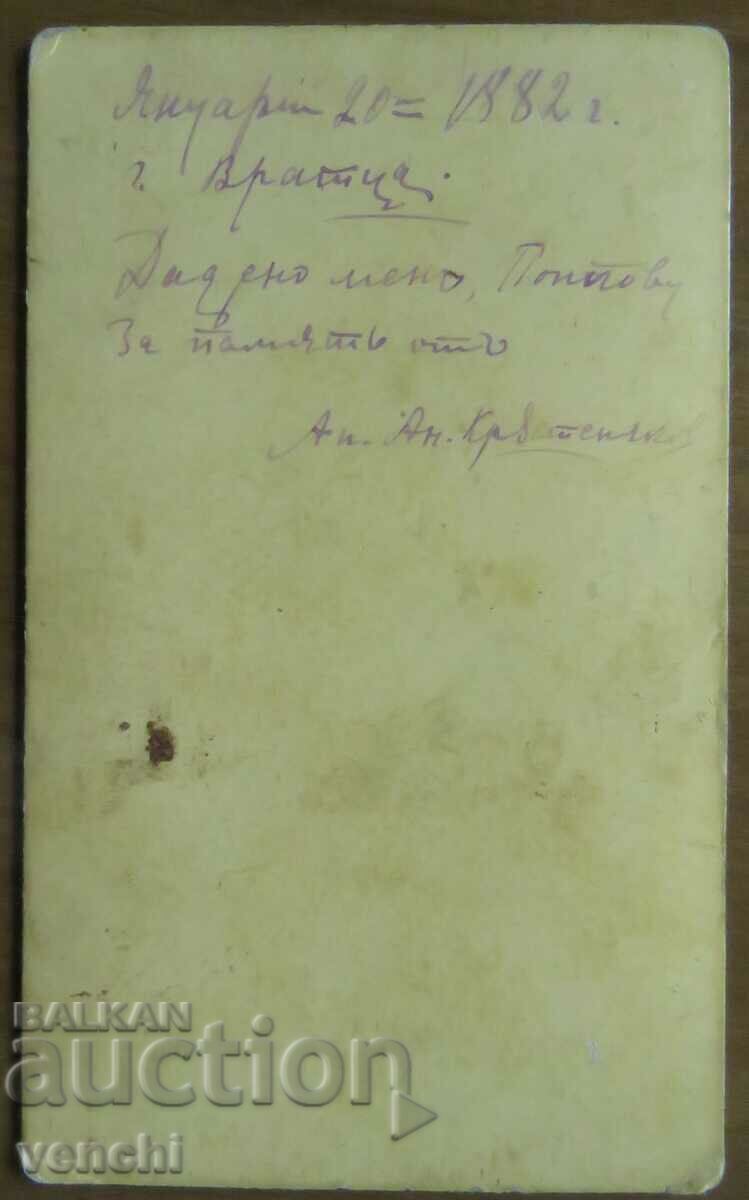 Януарий 20= 1882 г.
г. Вратца.
Дадено менѣ, Поппову
За память отъ
Ан. Ан.
BALKAN
auction
venchi